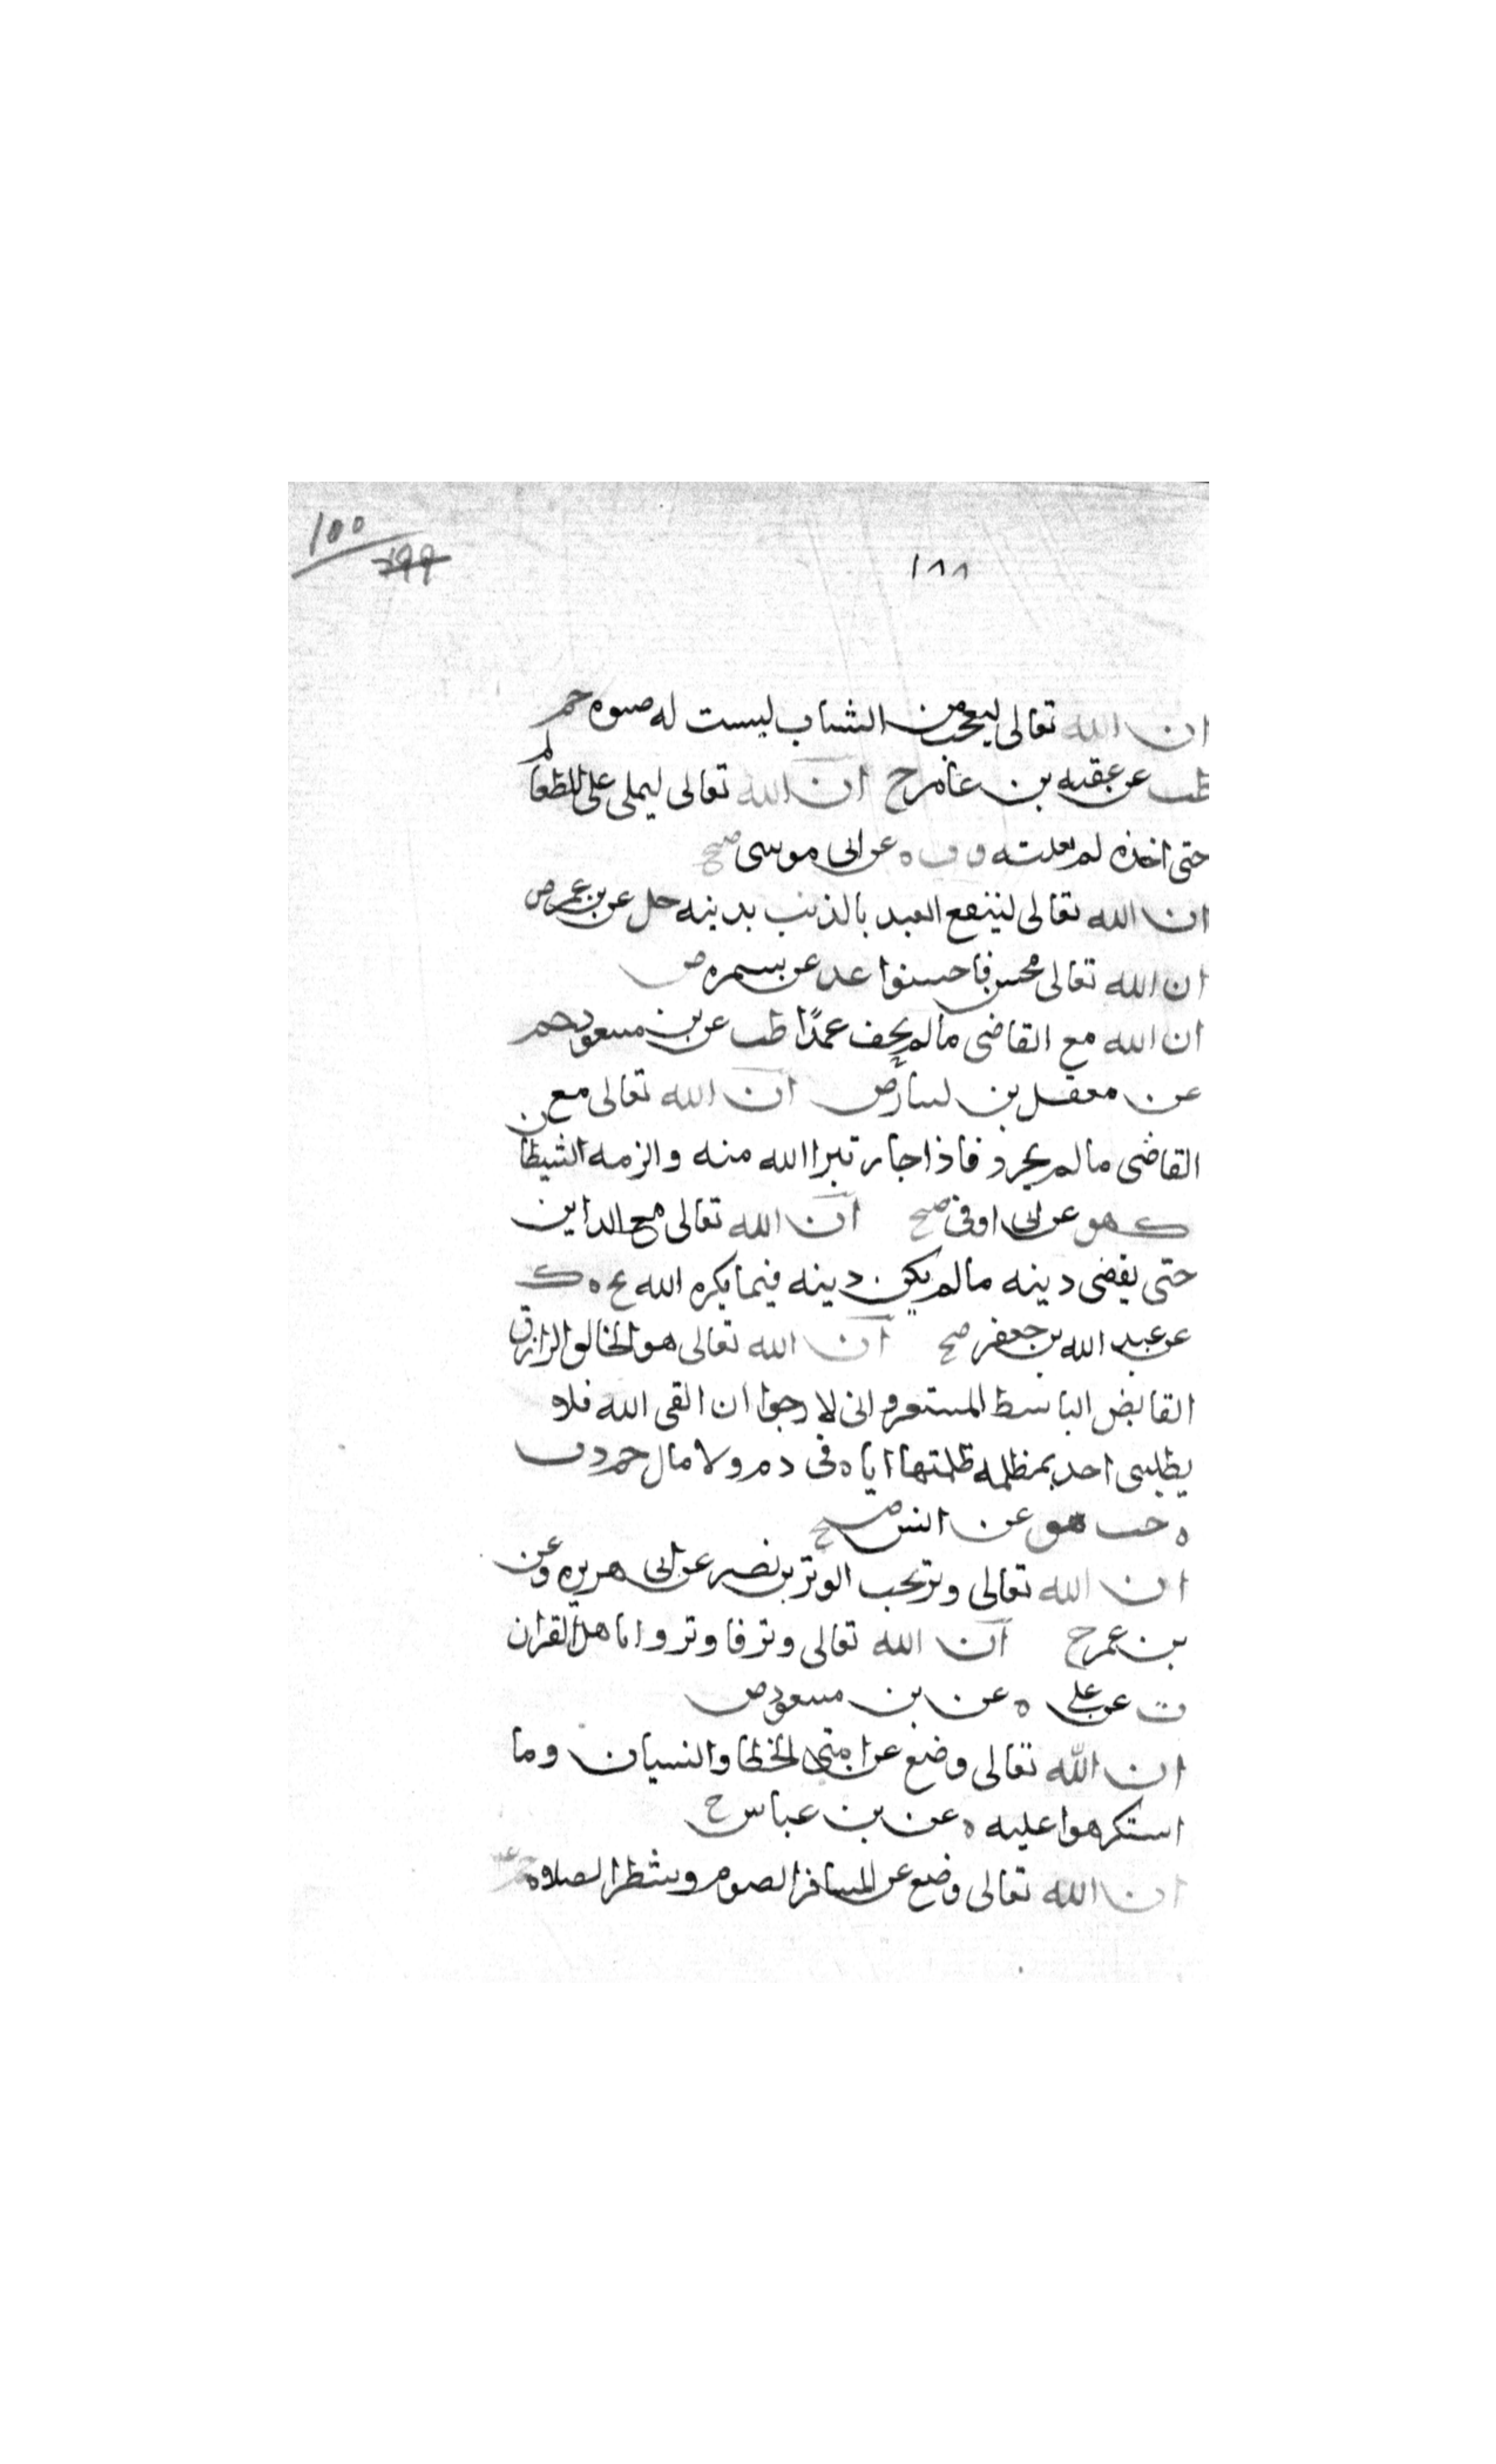 ١٨٨
100
199
ان الله تعالى ليعجب من الشاب ليست له صبوه حم
طب عن عقبه بن عامر ح ان الله تعالى ليملى على للظالم
حتى اخذه لم يفلته ق ت ه عن ابى موسى صح
ان الله تعالى لينفع العبد بالذنب يذنبه حل عن بن عمر ض
ان الله تعالى محسن فاحسنوا عد عن سمره ض
ان الله مع القاضى مالم يحف عمدًا طب عن بن مسعود حم
عن معقل بن يسار ض ان الله تعالى مع
القاضى مالم يجر فاذا جار تبرا الله منه والزمه الشيطان
ك هق عن بن ابى اوفى صح ان الله تعالى مع الداين
حتى يقضى دينه مالم يكن دينه فيما يكره الله تخ ه ك
عن عبد الله بن جعفر صح ان الله تعالى هو الخالق الرازق
القابض الباسط المسعر وانى لارجوا ان القى الله فلا
يطلبنى احد بمظلمه ظلمتها اياه فى دم ولا مال حم د ت
ه حب هق عن انس صح
ان الله تعالى وتر يحب الوتر بن نصر عن ابى هريره وعن
بن عمر ح ان الله تعالى وتر فاوتروا يا اهل القران
ت عن على ه عن بن مسعود ض
ان الله تعالى وضع عن امتى الخطا والنسيان وما
استكرهوا عليه ه عن بن عباس ح
ان الله تعالى وضع عن المسافر الصوم وشطر الصلاه حم عد